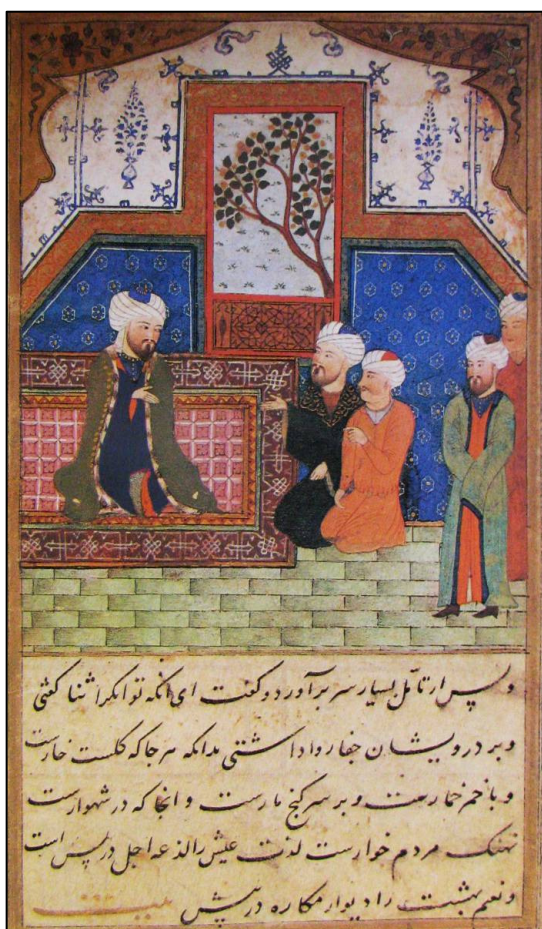 و پس از تأمل بسیار سر برآورد و گفت ای آنکه توانکرا ثنا کفتی
و بر درویشان جفا روا داشتی بدانکه هر جا که کلست خارست
و با خمر خمارست و بر سر کنج مارست و انجا که در شهوارست
نهنک مردم خوارست لذت عیش را لدغه اجل در پس است
و نعیم بهشت را دیوار مکاره در پیش بیت